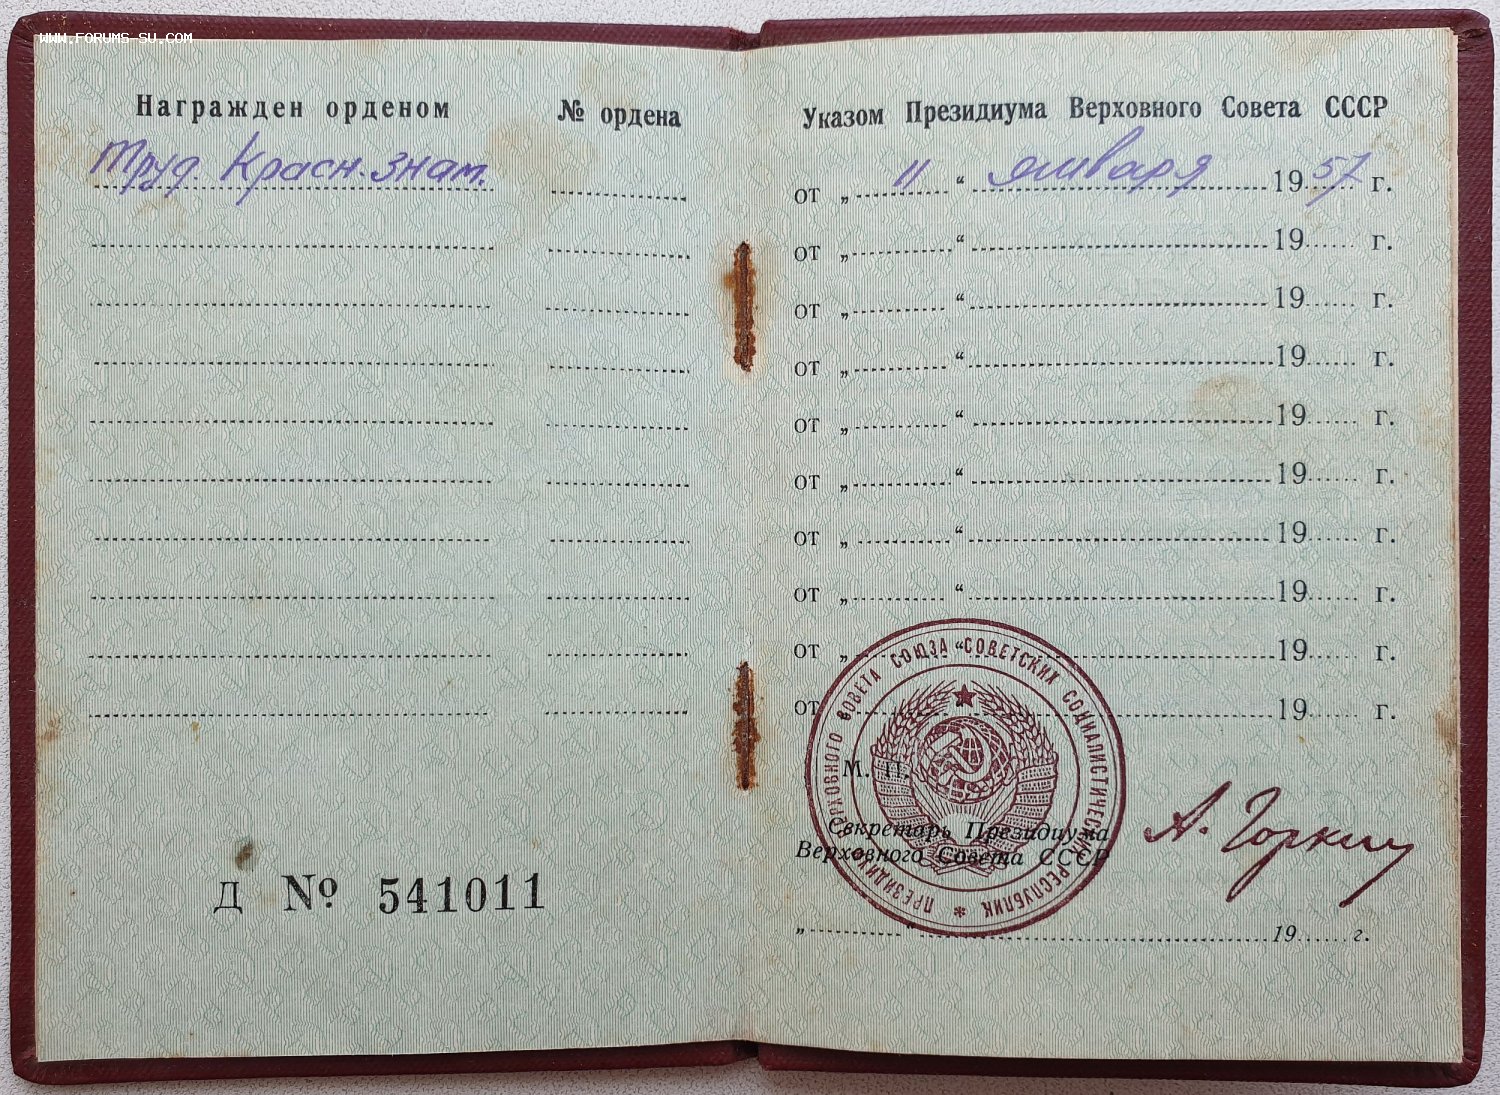 WWW.FORUMS-SU.COM
Награжден орденом
№ ордена
Труд. Красн. Знам.
Д № 541011
Указом Президиума Верховного Совета СССР
от „ 11 “ января 1957 г.
от „ “ 19 г.
от „ “ 19 г.
от „ “ 19 г.
от „ “ 19 г.
от „ “ 19 г.
от „ “ 19 г.
от „ “ 19 г.
от „ “ 19 г.
от „ “ 19 г.
ПРЕЗИДИУМ ВЕРХОВНОГО СОВЕТА СОЮЗА СОВЕТСКИХ СОЦИАЛИСТИЧЕСКИХ РЕСПУБЛИК *
М. П.
Секретарь Президиума
Верховного Совета СССР
А. Горкин
„ “ 19 г.